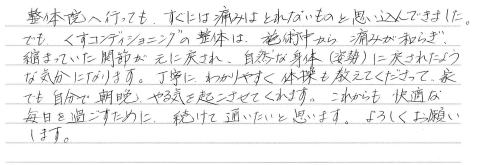 整体院へ行っても、すぐには痛みはとれないものと思い込んできました。
でも、くすコンディショニングの整体は、施術中から痛みが和らぎ、
縮まっていた関節が元に戻され、自然な身体(姿勢)に戻されたよう
な気分になります。丁寧に、わかりやすく体操も教えてくださって、家
でも自分で朝晩、やる気を起こさせてくれます。これからも快適な
毎日を過ごすために、続けて通いたいと思います。よろしくお願い
します。